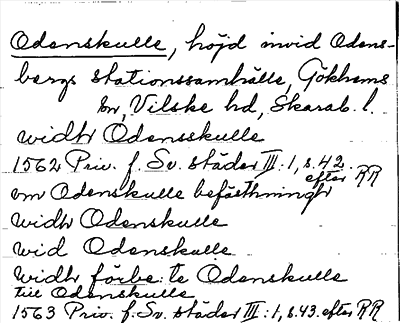 Odenskulle, höjd invid Odens-
bergs stationssamhälle, Gökhems
sn, Vilske hd, Skarab. l.
widh Odensskulle
1562 Priv. f. Sv. städer III: 1, s. 42.
efter RR
om Odenskulle befästningh
widh Odenskulle
wid Odenskulle
widh förbe:te Odenskulle
till Odenskulle
1563 Priv. f. Sv. städer III: 1, s. 43. efter RR